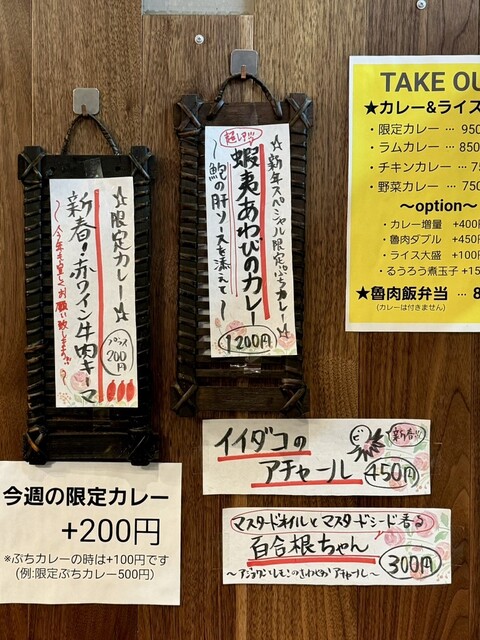 ☆限定カレー☆
新春!赤ワイン牛肉キーマ
〜今年も宜しくお願い致します!!〜
プラス
200円
☆新年スペシャル限定ぷちカレー☆
超レア!!
蝦夷あわびのカレー
〜鮑の肝ソースを添えて〜
1200円
TAKE OU
★カレー&ライス
・限定カレー … 950
・ラムカレー … 850
・チキンカレー … 75
・野菜カレー … 750
〜option〜
・カレー増量 +400円
・魯肉ダブル +450円
・ライス大盛 +100円
・るうろう煮玉子 +15
★魯肉飯弁当 … 8
(カレーは付きません)
イイダコの
アチャール
新春!!
450円
マスタードオイルとマスタードシード香る
百合根ちゃん
300円
今週の限定カレー
+200円
※ぷちカレーの時は+100円です
(例:限定ぷちカレー500円)